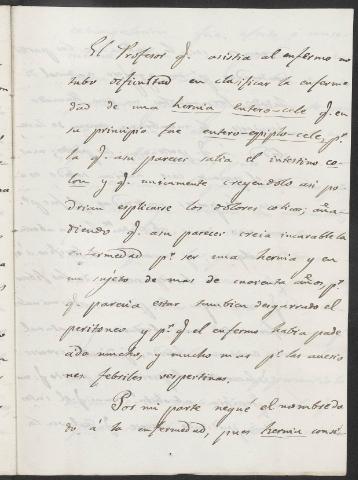 El Profesor q.e asistia al enfermo no
tubo dificultad en clasificar la enferme
dad de una hernia entero-cele q.e en
su principio fue entero-epiplo-cele, p.r
la q.e a su parecer salia el intestino co-
lon y q.e unicamente creyendolo asi po
drian esplicarse los dolores colicos; aña-
diendo q.e a su parecer creia incurable la
enfermedad p.r ser una hernia y en
un sujeto de mas de cuarenta años, p.r
q.e parecia estar tambien desgarrado el
peritoneo y p.r q.e el enfermo habia pade
cido mucho, y mucho mas p.r las accesio
nes febriles vespertinas.
Por mi parte negué el nombre da
do á la enfermedad, pues hernia consi-